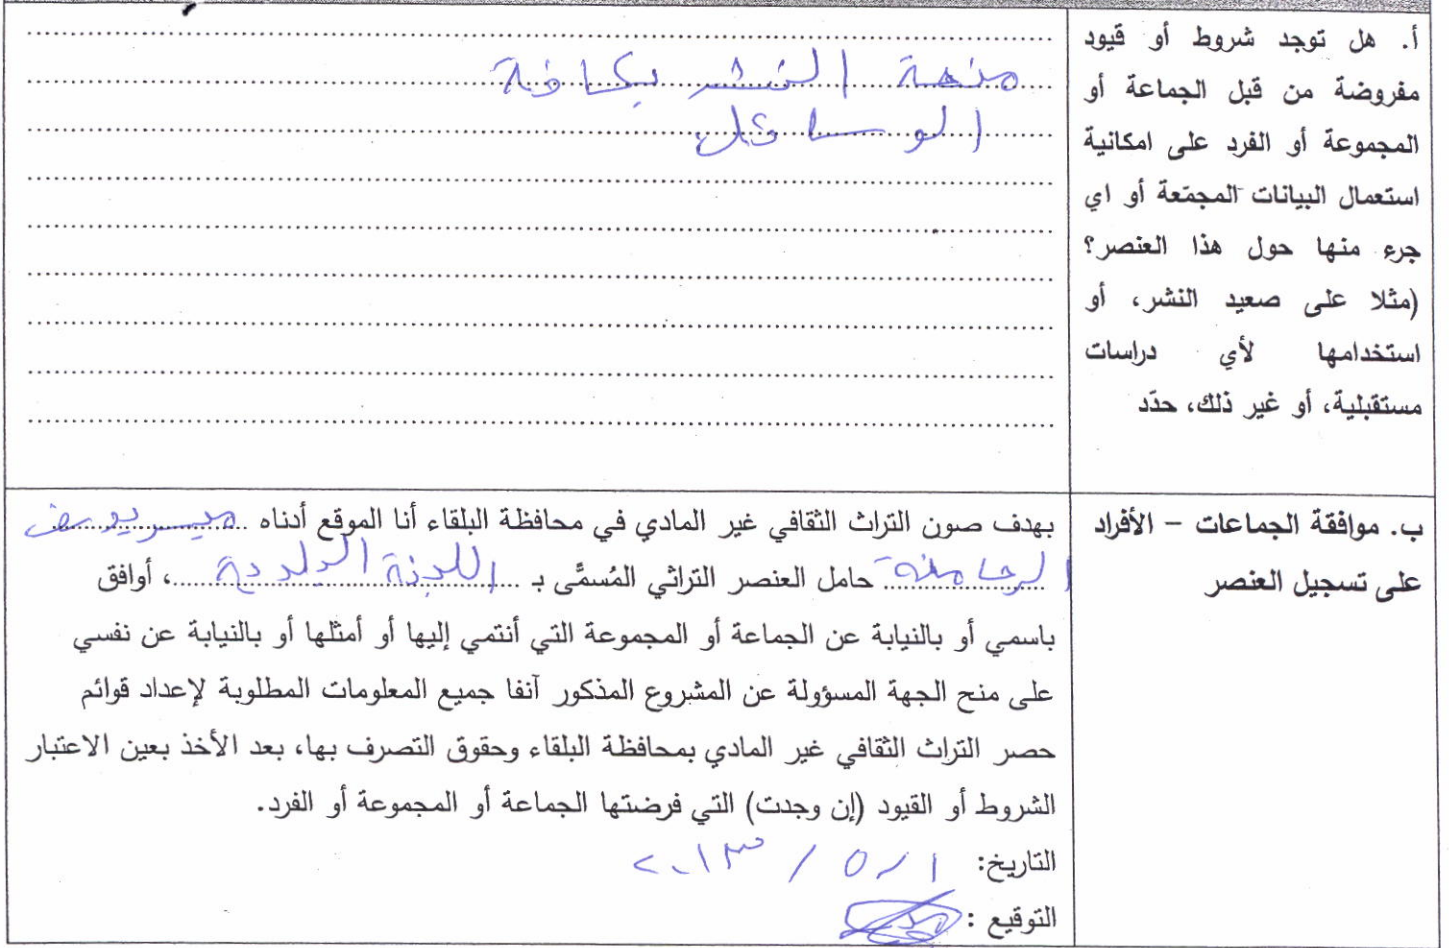 أ. هل توجد شروط أو قيود
مفروضة من قبل الجماعة أو
المجموعة أو الفرد على امكانية
استعمال البيانات المجمّعة أو اي
جرء منها حول هذا العنصر؟
(مثلا على صعيد النشر، أو
استخدامها لأي دراسات
مستقبلية، أو غير ذلك، حدّد
النشر بكافة
الوسائل
ب. موافقة الجماعات – الأفراد
على تسجيل العنصر
بهدف صون التراث الثقافي غير المادي في محافظة البلقاء أنا الموقع أدناه ميسر يوسف
الرحامنة حامل العنصر التراثي المُسمَّى بـ اللبنة البلدية، أوافق
باسمي أو بالنيابة عن الجماعة أو المجموعة التي أنتمي إليها أو أمثلها أو بالنيابة عن نفسي
على منح الجهة المسؤولة عن المشروع المذكور آنفا جميع المعلومات المطلوبة لإعداد قوائم
حصر التراث الثقافي غير المادي بمحافظة البلقاء وحقوق التصرف بها، بعد الأخذ بعين الاعتبار
الشروط أو القيود (إن وجدت) التي فرضتها الجماعة أو المجموعة أو الفرد.
التاريخ: ١ / ٥ / ٢٠١٣
التوقيع :